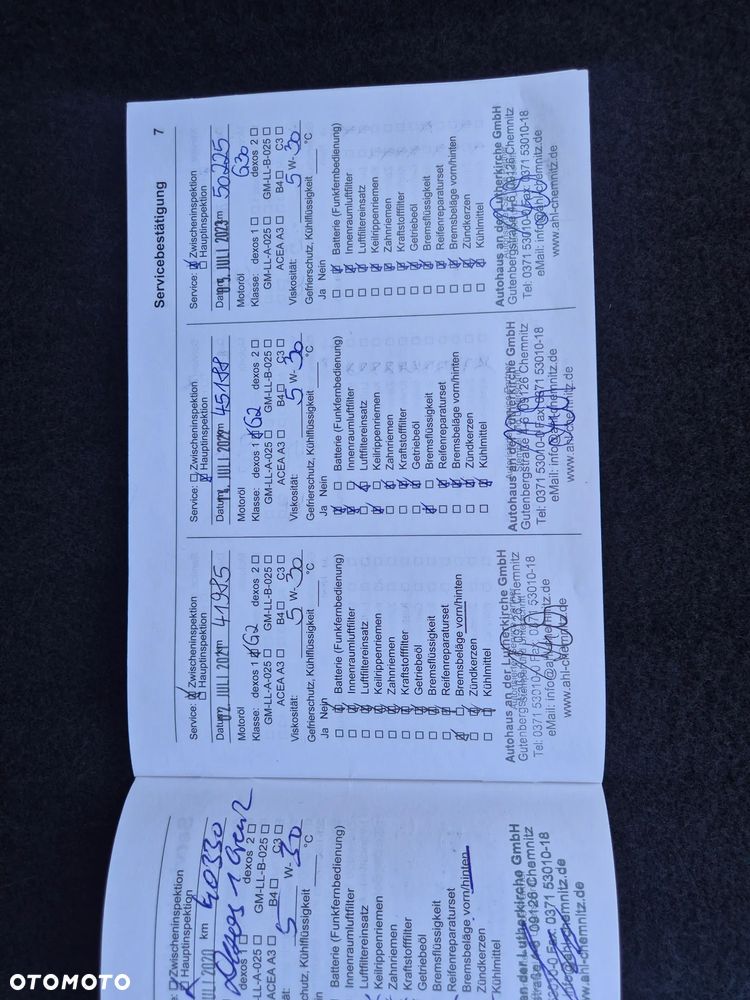 Servicebestätigung 7
Service: ☒ Zwischeninspektion
☐ Hauptinspektion
Datum 02. JULI 2021 km 41985
Motoröl
Klasse: dexos 1 ☒ G2 dexos 2 ☐
GM-LL-A-025 ☐ GM-LL-B-025 ☐
ACEA A3 ☐ B4 ☐ C3 ☐
Viskosität: 5 W- 30
Gefrierschutz, Kühlflüssigkeit °C
Ja Nein
☐ ☒ Batterie (Funkfernbedienung)
☐ ☒ Innenraumluftfilter
☐ ☒ Luftfiltereinsatz
☐ ☒ Keilrippenriemen
☐ ☒ Zahnriemen
☐ ☒ Kraftstofffilter
☐ ☒ Getriebeöl
☐ ☒ Bremsflüssigkeit
☐ ☒ Reifenreparaturset
☒ ☐ Bremsbeläge vorn/hinten
☐ ☒ Zündkerzen
☐ ☒ Kühlmittel
Autohaus an der Lutherkirche GmbH
Gutenbergstraße 4-6 09126 Chemnitz
Tel: 0371 53010-0 Fax: 0371 53010-18
eMail: info@ahl-chemnitz.de
www.ahl-chemnitz.de
Service: ☐ Zwischeninspektion
☒ Hauptinspektion
Datum JULI 2022 km 45188
Motoröl
Klasse: dexos 1 ☒ G2 dexos 2 ☐
GM-LL-A-025 ☐ GM-LL-B-025 ☐
ACEA A3 ☐ B4 ☐ C3 ☐
Viskosität: 5 W- 30
Gefrierschutz, Kühlflüssigkeit °C
Ja Nein
☒ ☐ Batterie (Funkfernbedienung)
☒ ☐ Innenraumluftfilter
☐ ☒ Luftfiltereinsatz
☒ ☐ Keilrippenriemen
☐ ☒ Zahnriemen
☐ ☒ Kraftstofffilter
☐ ☒ Getriebeöl
☒ ☐ Bremsflüssigkeit
☐ ☒ Reifenreparaturset
☐ ☒ Bremsbeläge vorn/hinten
☐ ☒ Zündkerzen
☐ ☒ Kühlmittel
Autohaus an der Lutherkirche GmbH
Gutenbergstraße 4-6 09126 Chemnitz
Tel: 0371 53010-0 Fax: 0371 53010-18
eMail: info@ahl-chemnitz.de
www.ahl-chemnitz.de
Service: ☒ Zwischeninspektion
☐ Hauptinspektion
Datum JULI 2023 km 50225
Motoröl G30
Klasse: dexos 1 ☐ dexos 2 ☐
GM-LL-A-025 ☐ GM-LL-B-025 ☐
ACEA A3 ☐ B4 ☐ C3 ☐
Viskosität: 5 W- 30
Gefrierschutz, Kühlflüssigkeit °C
Ja Nein
☐ ☒ Batterie (Funkfernbedienung)
☐ ☒ Innenraumluftfilter
☐ ☒ Luftfiltereinsatz
☐ ☒ Keilrippenriemen
☐ ☒ Zahnriemen
☐ ☒ Kraftstofffilter
☐ ☒ Getriebeöl
☐ ☒ Bremsflüssigkeit
☐ ☒ Reifenreparaturset
☐ ☒ Bremsbeläge vorn/hinten
☐ ☒ Zündkerzen
☐ ☒ Kühlmittel
Autohaus an der Lutherkirche GmbH
Gutenbergstraße 4-6 09126 Chemnitz
Tel: 0371 53010-0 Fax: 0371 53010-18
eMail: info@ahl-chemnitz.de
www.ahl-chemnitz.de
☐ Zwischeninspektion
Hauptinspektion
JULI 2020 km 40330
Dexos 1
dexos 1 ☐ dexos 2 ☐
GM-LL-A-025 ☐ GM-LL-B-025 ☐
B4 ☐ C3 ☐
5 W- 30
schutz, Kühlflüssigkeit °C
Batterie (Funkfernbedienung)
Innenraumluftfilter
Luftfiltereinsatz
Keilrippenriemen
Zahnriemen
Kraftstofffilter
Getriebeöl
Bremsflüssigkeit
Reifenreparaturset
Bremsbeläge vorn/hinten
Zündkerzen
Kühlmittel
an der Lutherkirche GmbH
09126 Chemnitz
Fax: 0371 53010-18
info@ahl-chemnitz.de
www.ahl-chemnitz.de
OTOMOTO